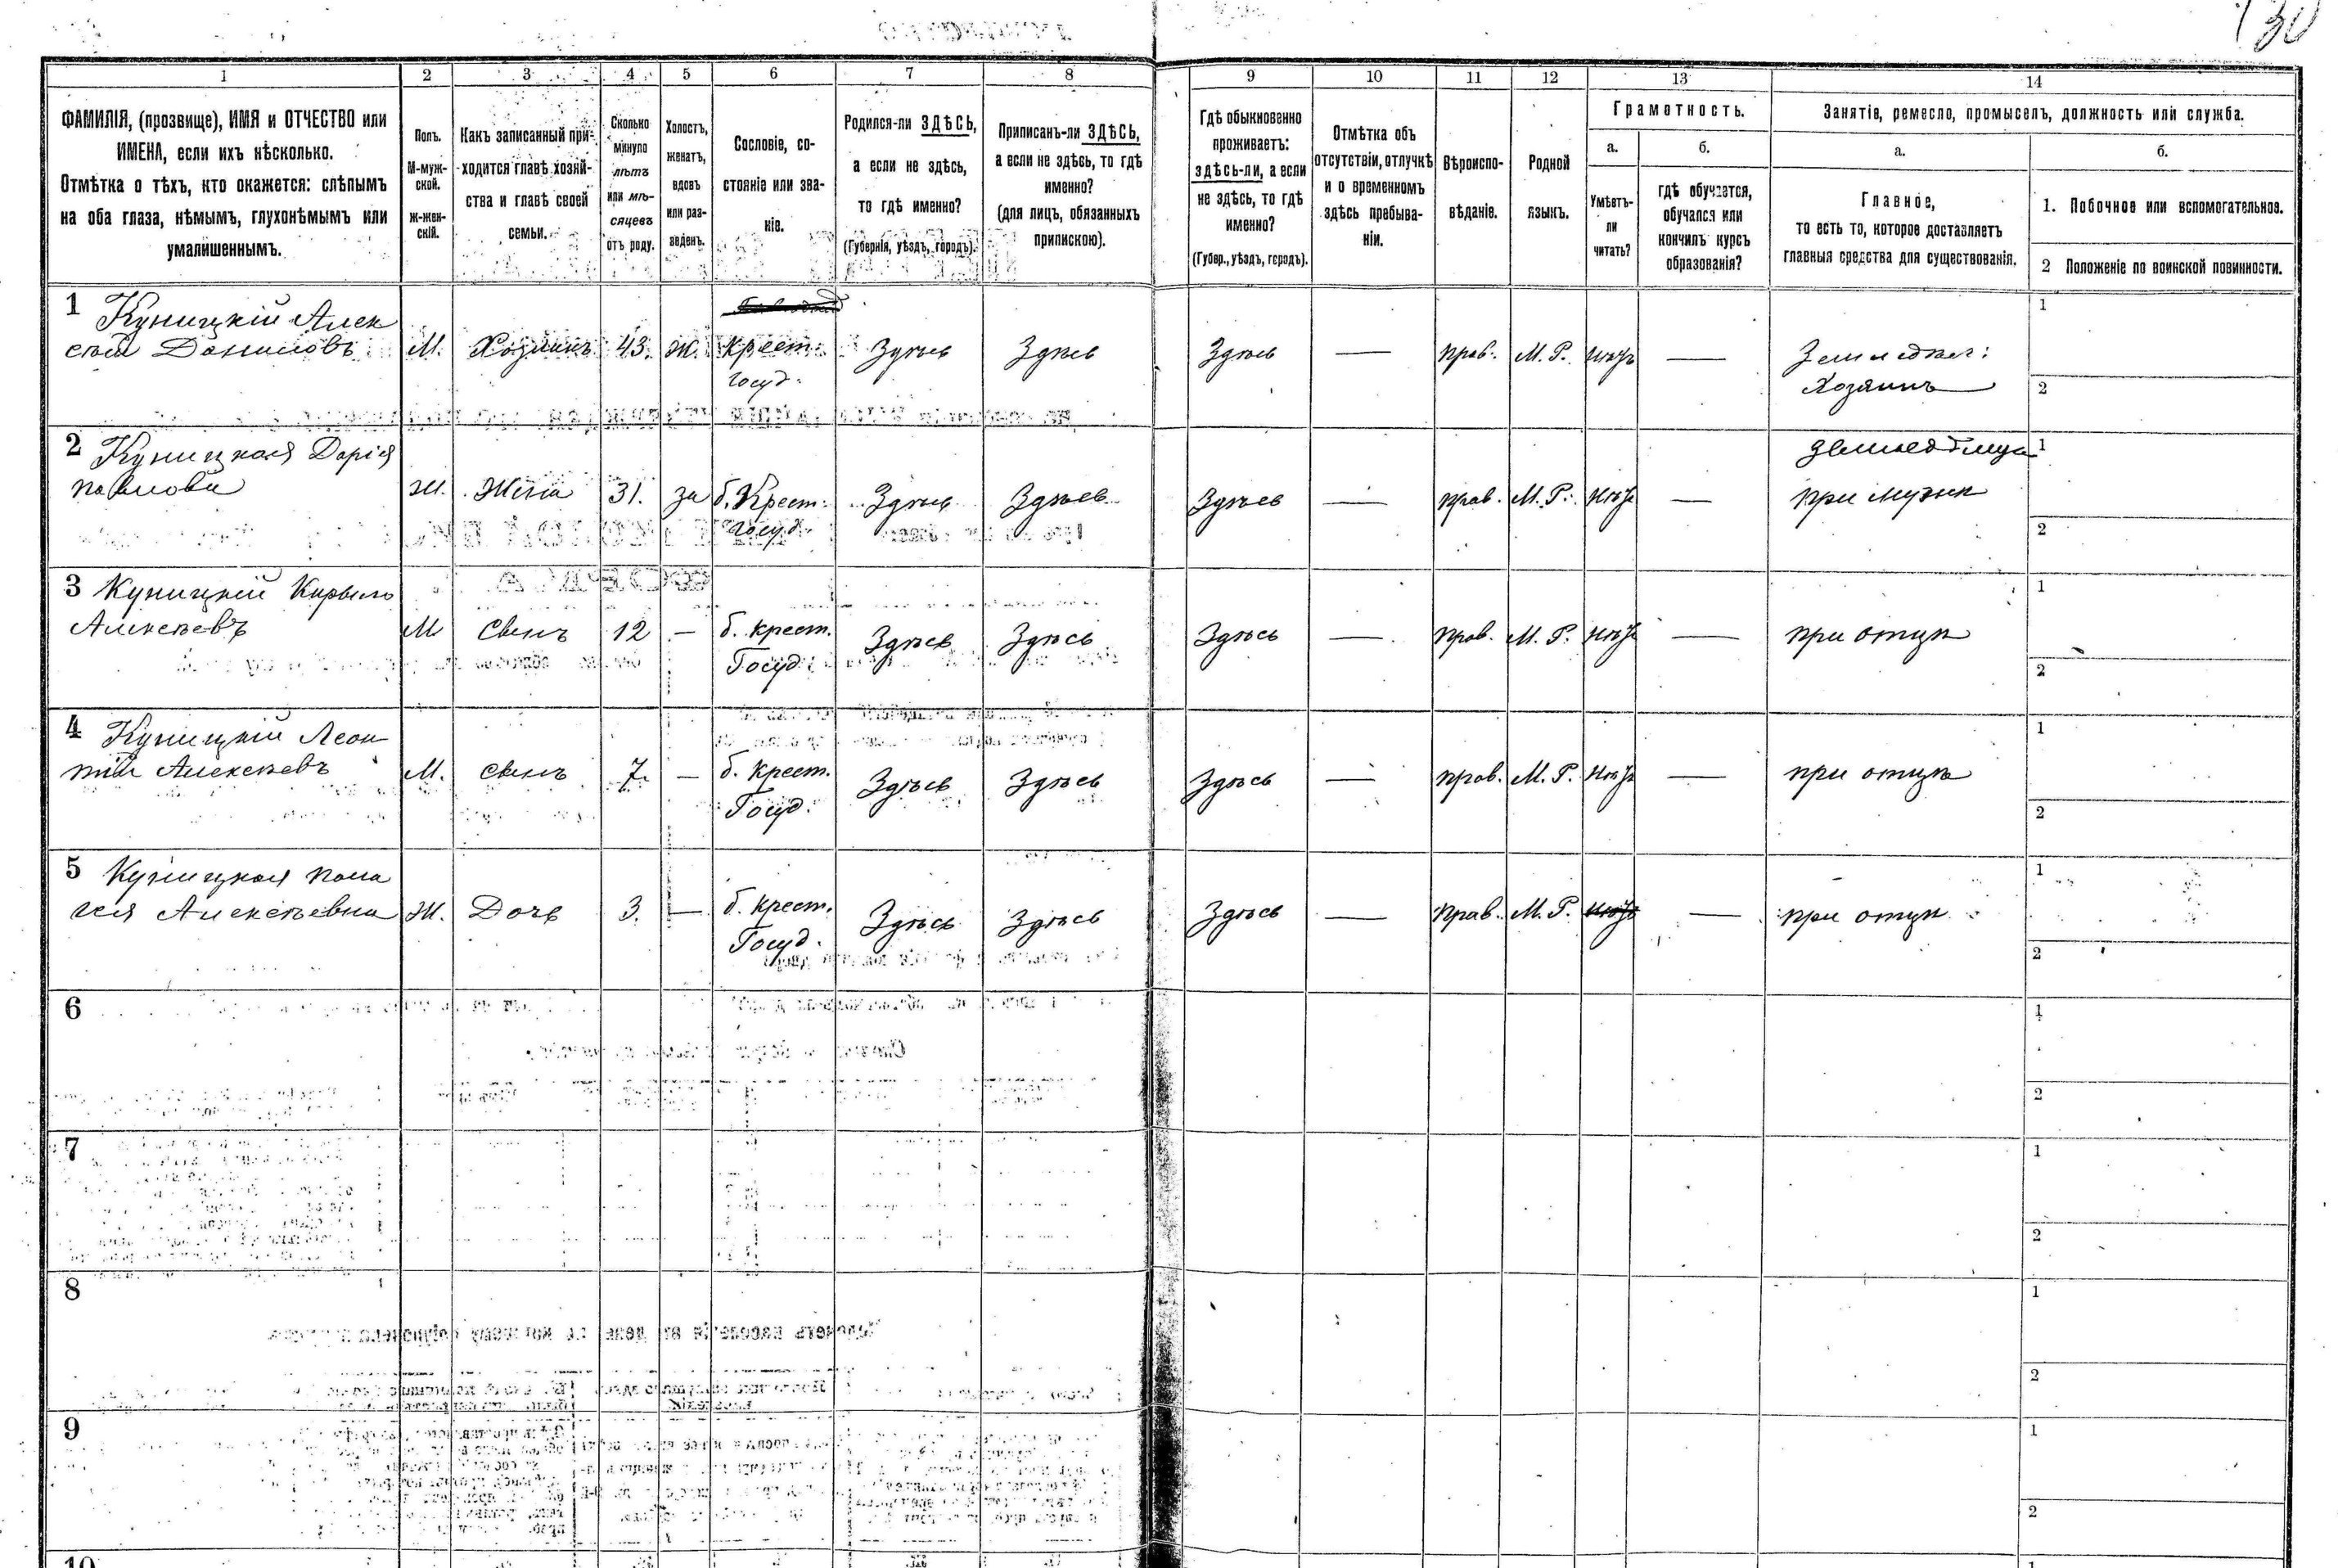 130
1 2 3 4 5 6 7 8 9 10 11 12 13 14
ФАМИЛІЯ, (прозвище), ИМЯ и ОТЧЕСТВО или
ИМЕНА, если ихъ нѣсколько.
Отмѣтка о тѣхъ, кто окажется: слѣпымъ
на оба глаза, нѣмымъ, глухонѣмымъ или
умалишеннымъ.
Полъ.
М-муж-
ской.
Ж-жен-
скій.
Какъ записанный при-
ходится главѣ хозяй-
ства и главѣ своей
семьи.
Сколько
минуло
лѣтъ
или мѣ-
сяцевъ
отъ роду.
Холостъ,
женатъ,
вдовъ
или раз-
веденъ.
Сословіе, со-
стояніе или зва-
ніе.
Родился-ли ЗДѢСЬ,
а если не здѣсь,
то гдѣ именно?
(Губернія, уѣздъ, городъ).
Приписанъ-ли ЗДѢСЬ,
а если не здѣсь, то гдѣ
именно?
(для лицъ, обязанныхъ
припискою).
Гдѣ обыкновенно
проживаетъ:
здѣсь-ли, а если
не здѣсь, то гдѣ
именно?
(Губер., уѣздъ, городъ).
Отмѣтка объ
отсутствіи, отлучкѣ
и о временномъ
здѣсь пребыва-
ніи.
Вѣроиспо-
вѣданіе.
Родной
языкъ.
Грамотность.
а.
Умѣетъ-
ли
читать?
б.
гдѣ обучается,
обучался или
кончилъ курсъ
образованія?
Занятіе, ремесло, промыселъ, должность или служба.
а.
Главное,
то есть то, которое доставляетъ
главныя средства для существованія.
б.
1. Побочное или вспомогательное.
2 Положеніе по воинской повинности.
1 Куницкій Алек
сѣй Даниловъ М. Хозяинъ 43. ж. Крест. Здѣсь Здѣсь Здѣсь — прав. М. Р. нѣтъ — Земледѣл: 1
госуд. Хозяинъ 2
2 Куницкая Дарія Земледѣлица 1
Павлова Ж. Жена 31. за б. Крест. Здѣсь Здѣсь Здѣсь — прав. М. Р. нѣтъ — при мужѣ
госуд. 2
3 Куницкій Кирыло 1
Алексѣевъ М Сынъ 12 — б. крест. Здѣсь Здѣсь Здѣсь — прав. М. Р. нѣтъ — при отцѣ
Госуд. 2
4 Куницкій Леон 1
тій Алексѣевъ М. Сынъ 7. — б. крест. Здѣсь Здѣсь Здѣсь — прав. М. Р. нѣтъ — при отцѣ
Госуд. 2
5 Куницкая Пала 1
гея Алексѣевна Ж. Дочь 3. — б. крест. Здѣсь Здѣсь Здѣсь — прав. М. Р. нѣтъ — при отцѣ
Госуд. 2
6 1
2
7 1
2
8 1
2
9 1
2
10 1